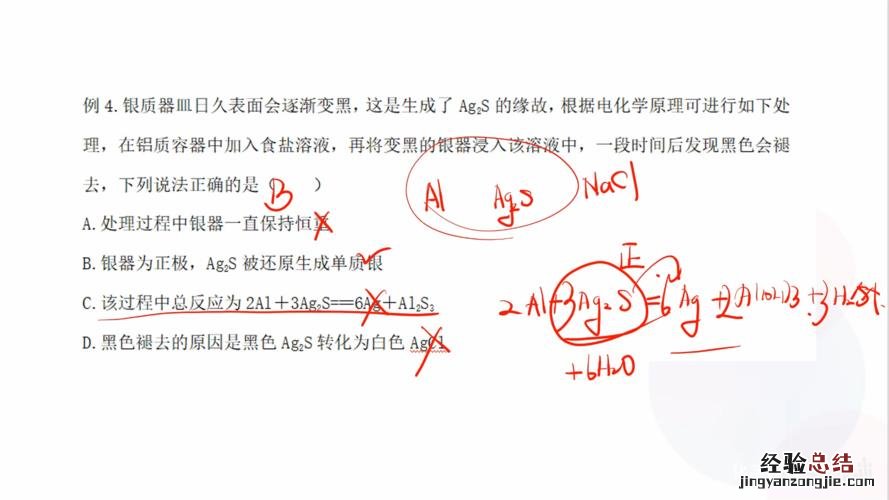 例 4.银质器皿日久表面会逐渐变黑，这是生成了 Ag₂S 的缘故，根据电化学原理可进行如下处
理，在铝质容器中加入食盐溶液，再将变黑的银器浸入该溶液中，一段时间后发现黑色会褪
去，下列说法正确的是（B ）
Al Ag₂S NaCl
A.处理过程中银器一直保持恒重
B.银器为正极，Ag₂S 被还原生成单质银
正
C.该过程中总反应为 2Al＋3Ag₂S===6Ag＋Al₂S₃
2Al+3Ag₂S=6Ag+2Al(OH)3+3H₂S
D.黑色褪去的原因是黑色 Ag₂S 转化为白色 AgCl
+6H₂O
经验总结
jingyanzongjie.com